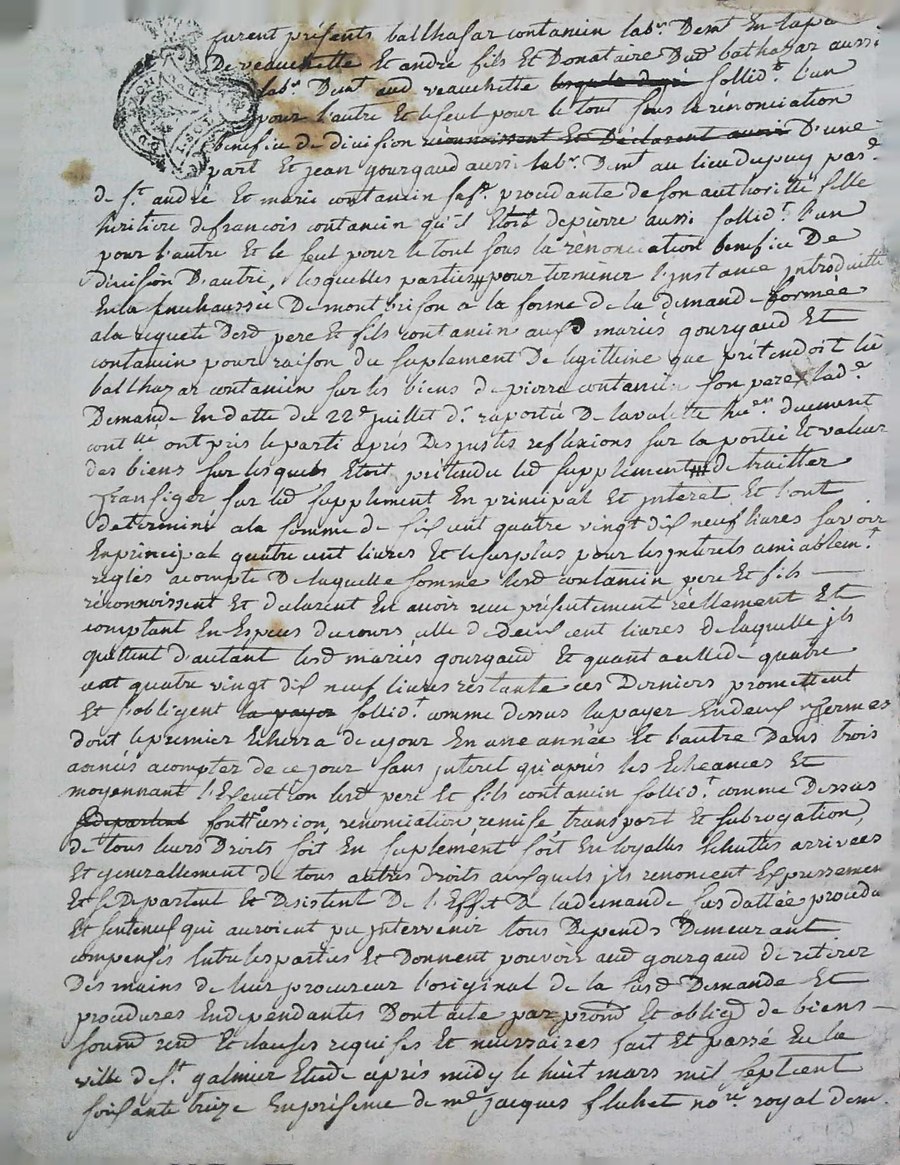 furent présents balthasar contamin lab.r Dem.t En la pa
De veauchette Et andré fils Et Donataire Dud balthazar aussi
lab.r Dem.t aud veauchette sollid.t l'un
pour l'autre Et le seul pour le tout sous la rénonciation
benefice de division réconnoissent Et Déclarent avoir D'une
part Et jean gourgaud aussi lab.r Dem.t au lieu du puy par.e
de s.t andré Et marie contamin sa f.e procedante de son authorité fille
heritiere de francois contamin qu'il Etoit de pierre aussi sollid.t l'un
pour l'autre Et le seul pour le tout sous la rénonciation benefice De
division D'autre, lesquelles parties pour terminer l'jnstance jntroduitte
En la senechaussée De montbrison a la forme de la demande formée
a la requete Desd pere Et fils contamin aux d mariés gourgaud Et
contamin pour raison du suplement De legittime que prétendoit led
balthazar contamin sur les biens de pierre contamin son pere lad.e
Demande En datte du 22e juillet d.r raportée De lavalette huis.er duement
cont.lée ont pris le parti après Des justes reflexions sur la portée Et valeur
des biens sur lesquels Etoit prétendu led supplement de traitter
transiger sur led supplement En principal Et jnteret Et l'ont
determiné a la somme de six cent quatre vingt dix neuf livres savoir
En principal quatre cent livres Et le surplus pour les jnterets amiablem.t
reglés a compte De laquelle somme lesd contamin pere Et fils
réconnoissent Et declarent En avoir reçu présentement réellement Et
comptant En Espèces du cours celle de Deux cent livres De laquelle jls
quittent d'autant lesd mariés gourgaud Et quant a celle de quatre
cent quatre vingt dix neuf livres restante ces Derniers promettent
Et s'obligent la payer sollid.t comme dessus la payer En deux termes
dont le premier Echerra de ce jour En une année Et l'autre Dans trois
années a compter de ce jour sans jnteret qu'après les Echeances Et
moyennant l'Execution lesd pere Et fils contamin sollid.t comme Dessus
se departent font cession, renonciation, remise, transport Et subrogation,
de tous leurs Droits soit En suplement, soit En loyalles Echuttes arrivées
Et generallement de tous autres droits auxquels jls renoncent Expressement
Et se Departent Et Desistent De l'Effet De la demande sus dattée, procedu
Et sentences qui auroient pu jntervenir tous Depends Demeurant
compensés Entre les parties Et Donnent pouvoir aud gourgaud de retirer
Des mains de leur procureur l'original de la susd Demande Et
procedures En dépendantes Dont acte par promd Et obligd de biens
soumd rend Et clauses requises Et necessaires fait Et passé En la
ville de s.t galmier Etude après midy le huit mars mil sept cent
soixante treize En présence de me jacques no.re royal dem.